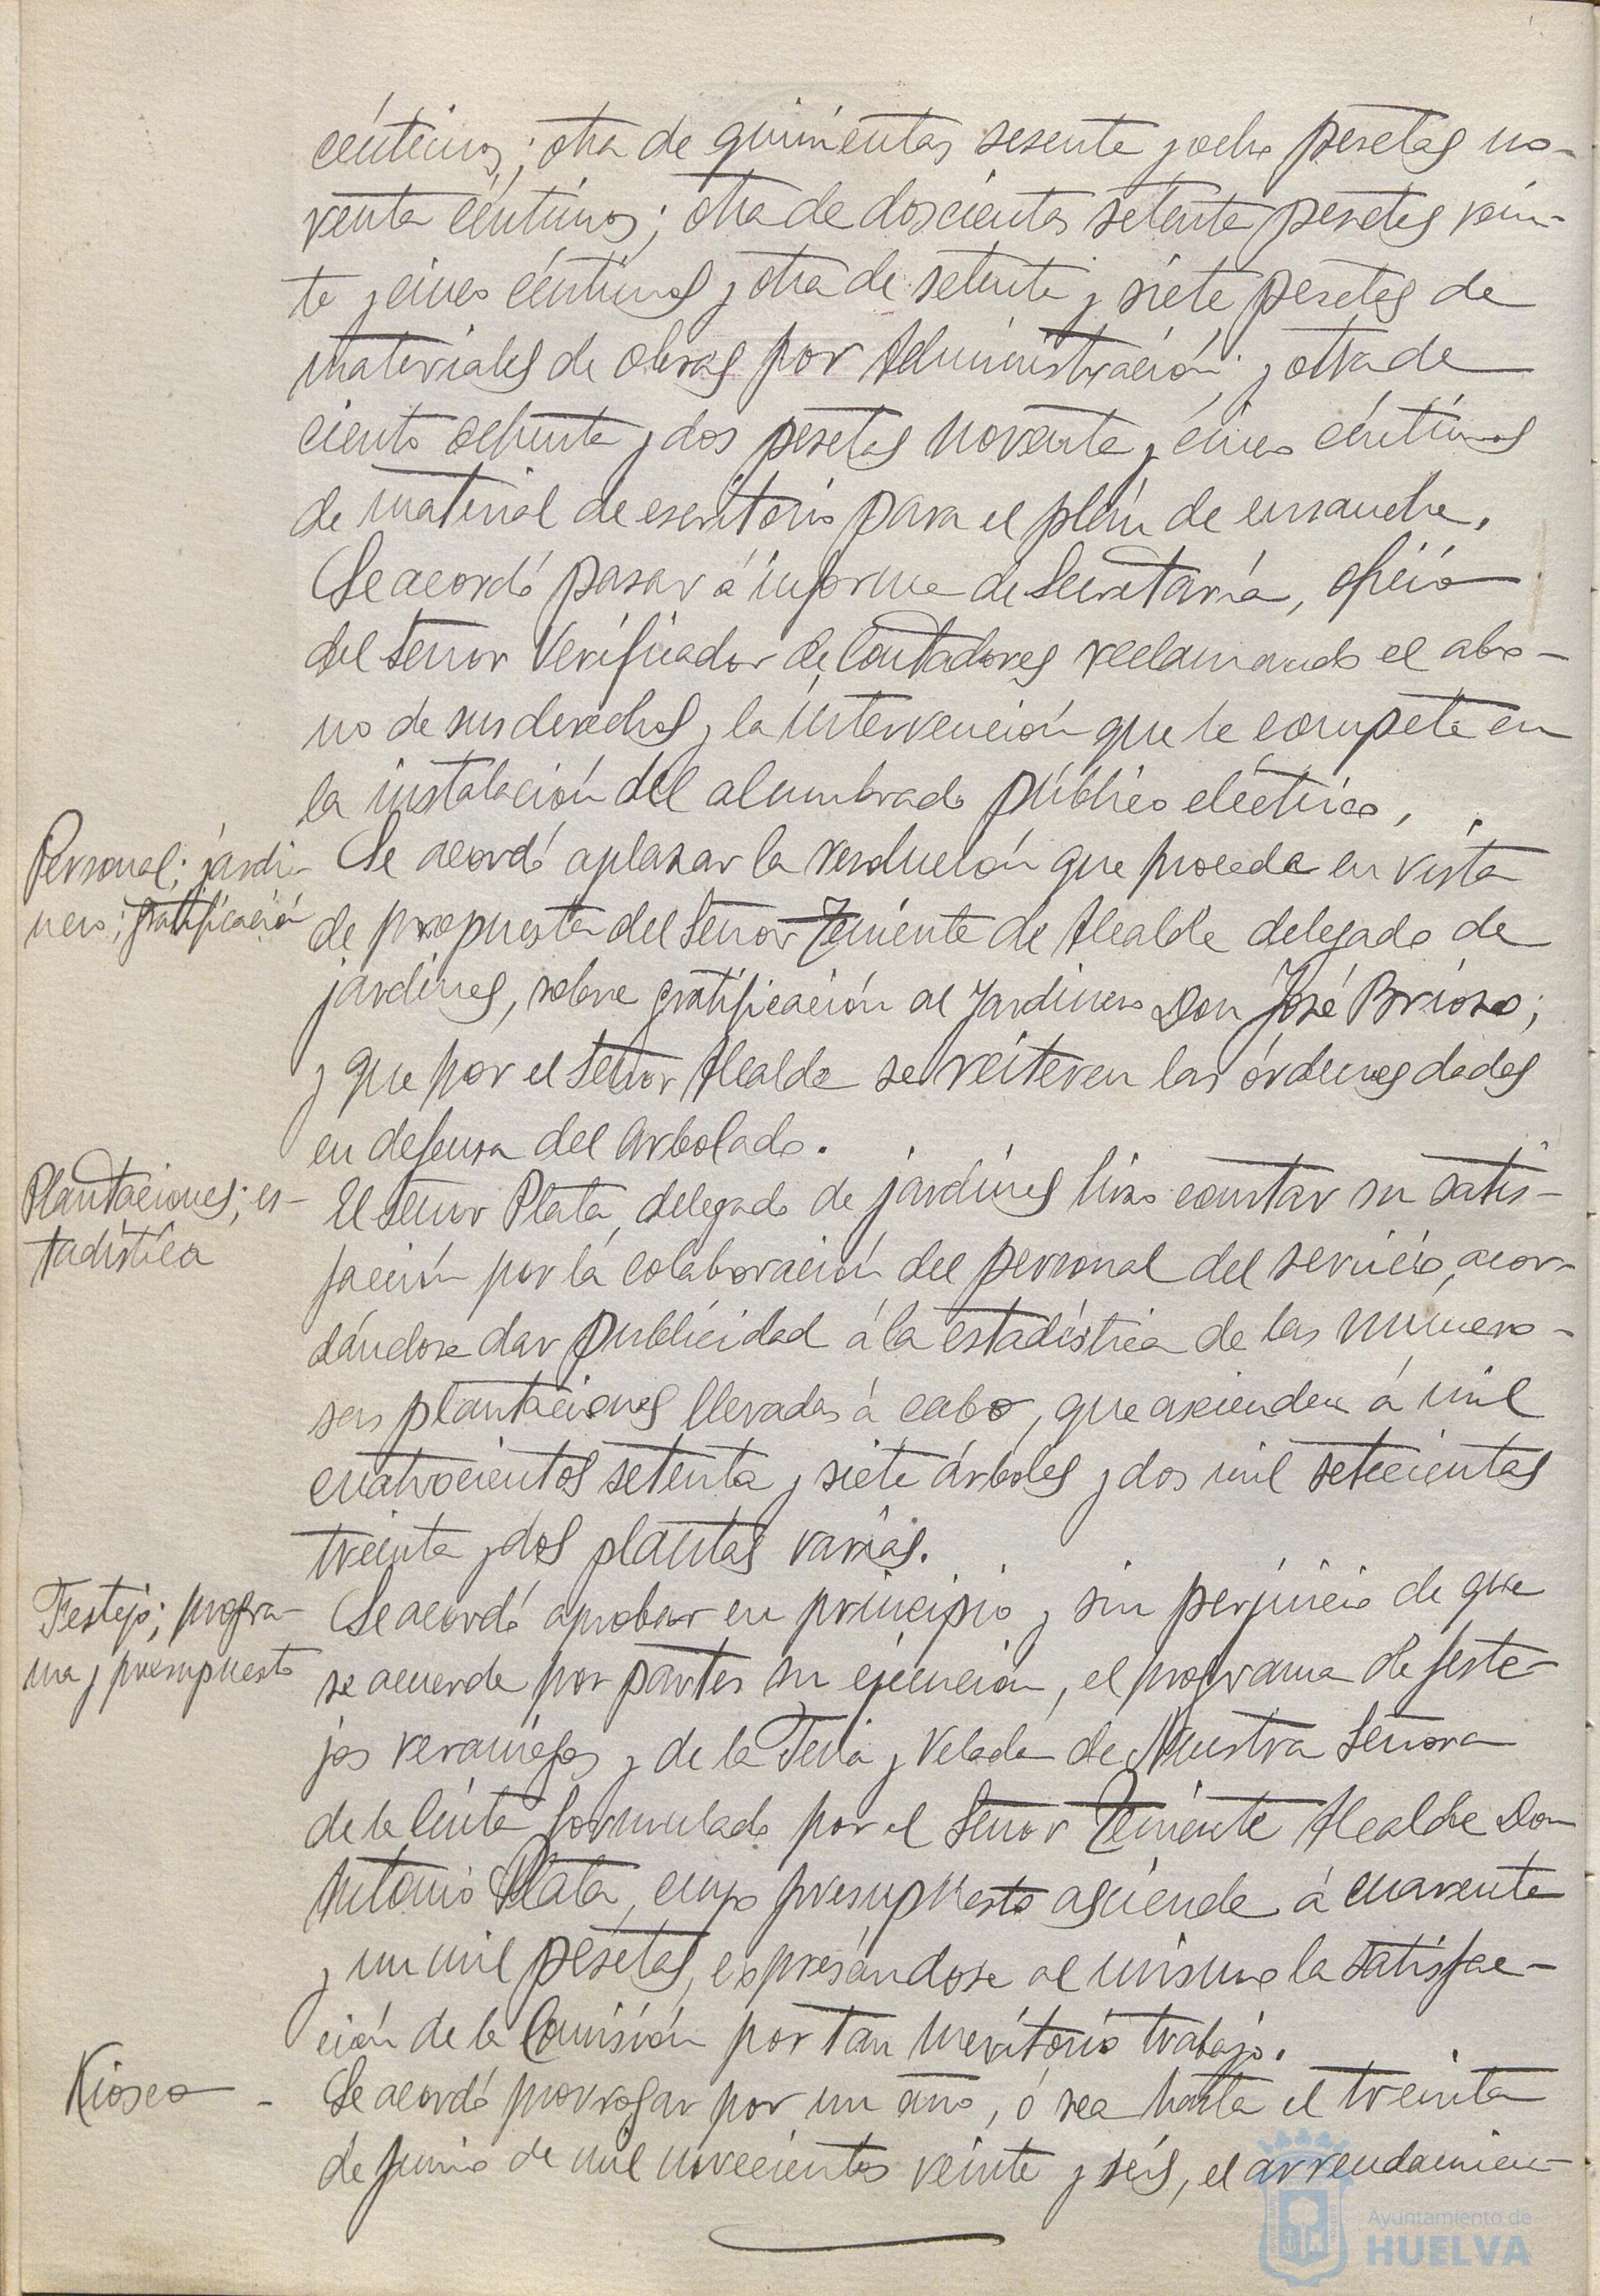 céntimos; otra de quinientas sesenta y ocho pesetas no-
venta céntimos; otra de doscientas setenta pesetas vein-
te y cinco céntimos y otra de setenta y siete pesetas de
materiales de obras por Administración; y otra de
ciento ochenta y dos pesetas noventa y cinco céntimos
de material de escritorio para el plán de ensanche.
Se acordó pasar á informe de Secretaría, oficio
del Señor Verificador de Contadores reclamando el abo-
no de sus derechos y la intervención que le compete en
la instalación del alumbrado público eléctrico.
Personal; jardi-
nero; gratificación
Se acordó aplazar la resolución que proceda en vista
de propuesta del Señor Teniente de Alcalde delegado de
jardines, sobre gratificación al Jardinero Don José Brioso;
y que por el Señor Alcalde se reiteren las órdenes dadas
en defensa del arbolado.
Plantaciones; es-
tadística
El Señor Plata, delegado de jardines hizo constar su satis-
facción por la colaboración del personal del servicio, acor-
dándose dar publicidad á la estadística de las numero-
sas plantaciones llevadas á cabo, que ascienden á mil
cuatrocientos setenta y siete árboles y dos mil setecientas
treinta y dos plantas varias.
Festejos; progra-
ma y presupuesto
Se acordó aprobar en principio y sin perjuicio de que
se acuerde por partes su ejecución, el programa de feste-
jos veraniegos y de la Feria y Velada de Nuestra Señora
de la Cinta formulado por el Señor Teniente Alcalde Don
Antonio Plata, cuyo presupuesto asciende á cuarenta
y un mil pesetas, expresándose al mismo la satisfac-
ción de la Comisión por tan meritorio trabajo.
Kiosco -
Se acordó prorrogar por un año, ó sea hasta el treinta
de Junio de mil novecientos veinte y seis, el arrendamien-
Ayuntamiento de
HUELVA